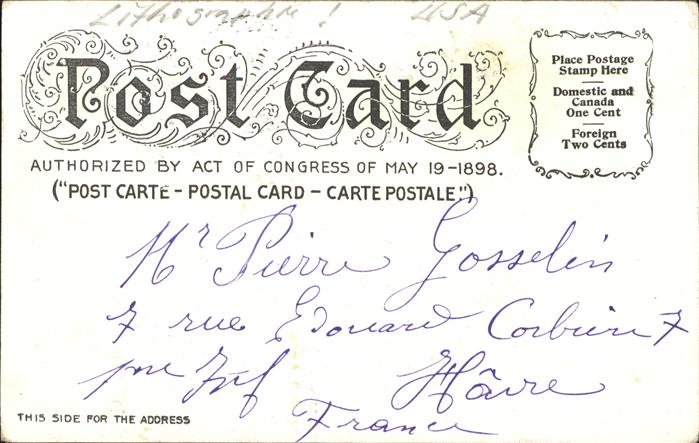 Lithographie ! USA
Post Card
Place Postage
Stamp Here
Domestic and
Canada
One Cent
Foreign
Two Cents
AUTHORIZED BY ACT OF CONGRESS OF MAY 19-1898.
("POST CARTE - POSTAL CARD - CARTE POSTALE")
Mr Pierre Gosselin
7 rue Edouard Corbière 7
Hâvre
France
THIS SIDE FOR THE ADDRESS